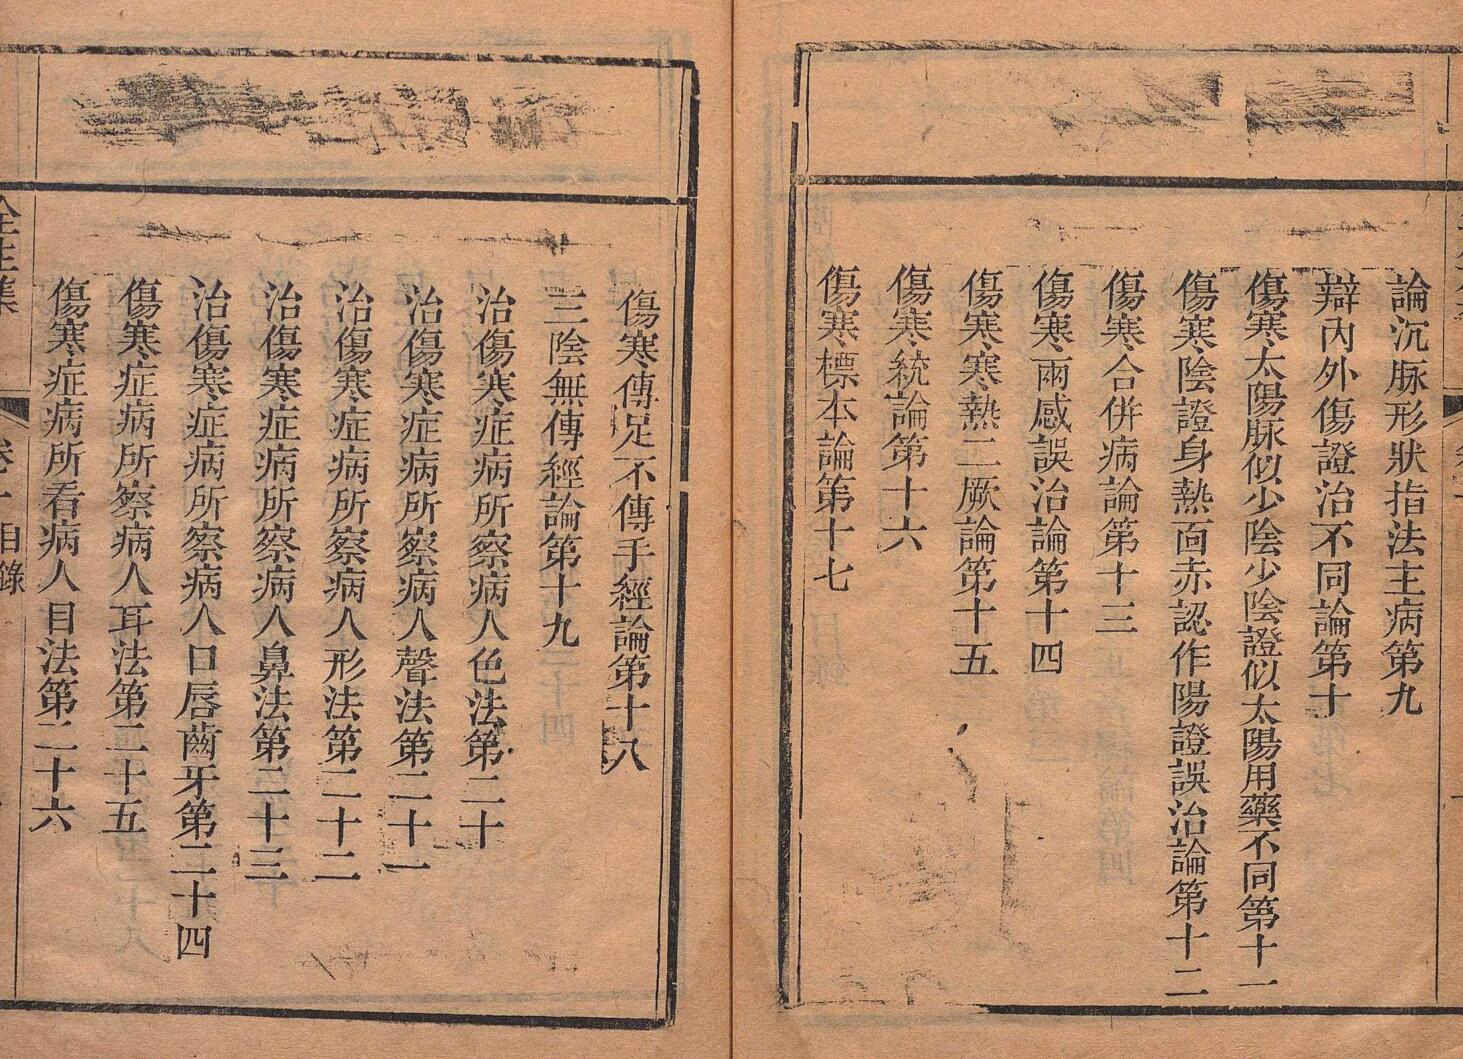 論沉脉形狀指法主病第九
辯內外傷證治不同論第十
傷寒太陽脉似少陰少陰證似太陽用藥不同第十一
傷寒陰證身熱面赤認作陽證誤治論第十二
傷寒合併病論第十三
傷寒兩感誤治論第十四
傷寒寒熱二厥論第十五
傷寒統論第十六
傷寒標本論第十七
傷寒傳足不傳手經論第十八
三陰無傳經論第十九
治傷寒症病所察病人色法第二十
治傷寒症病所察病人聲法第二十一
治傷寒症病所察病人形法第二十二
治傷寒症病所察病人鼻法第二十三
治傷寒症病所察病人口唇齒牙第二十四
傷寒症病所察病人耳法第二十五
傷寒症病所看病人目法第二十六
全生集 卷一 目錄